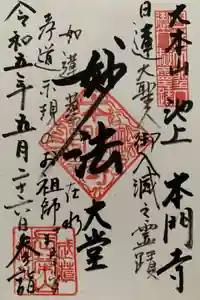 大本山 池上 本門寺
日蓮大聖人御入滅之霊蹟
妙法
大堂
如蓮華在水
孝道示現のお祖師さま
令和五年五月二十二日参詣